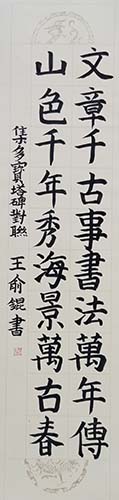 文章千古事書法萬年傳
山色千年秀海景萬古春
集多寶塔碑對聯
王俞錕書